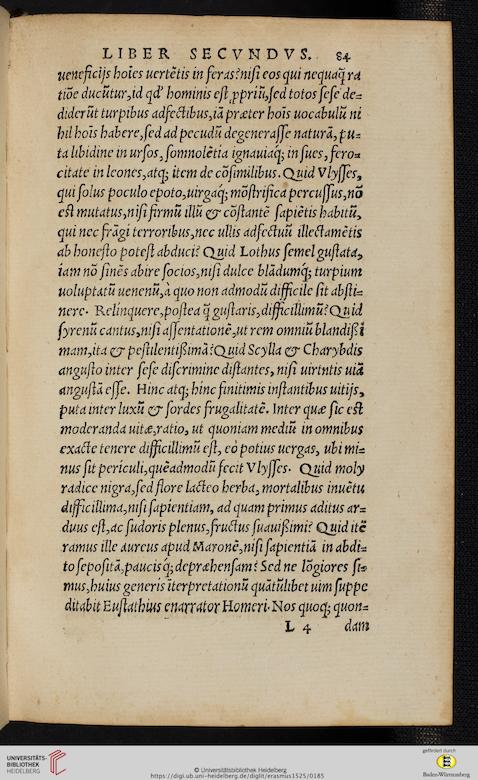 LIBER SECVNDVS. 84
ueneficijs hoīes uertētis in feras? nisi eos qui nequaq̃ ra
tiōe ducūtur, id qd' hominis est ꝓpriū, sed totos sese de=
diderūt turpibus adfectibus, iā præter hoīs uocabulū ni
hil hoīs habere, sed ad pecudū degenerasse naturā, pu=
ta libidine in ursos, somnolētia ignauiaq́; in sues, fero=
citate in leones, atq; item de cōsimilibus. Quid Vlysses,
qui solus poculo epoto, uirgaq́; mōstrifica percussus, nō
est mutatus, nisi firmū illū & cōstantē sapiētis habitū,
qui nec frāgi terroribus, nec ullis adfectuū illectamētis
ab honesto potest abduci? Quid Lothus semel gustata,
iam nō sinēs abire socios, nisi dulce blādumq́; turpium
uoluptatū uenenū, à quo non admodū difficile sit absti=
nere. Relinquere, postea q̃ gustaris, difficillimū? Quid
syrenū cantus, nisi assentationē, ut rem omniū blandißi
mam, ita & pestilentißimā? Quid Scylla & Charybdis
angusto inter sese discrimine distantes, nisi uirtutis uiā
angustā esse. Hinc atq; hinc finitimis instantibus uitijs,
puta inter luxū & sordes frugalitatē. Inter quæ sic est
moderanda uitæ, ratio, ut quoniam mediū in omnibus
exacte tenere difficillimū est, eò potius uergas, ubi mi=
nus sit periculi, quēadmodū fecit Vlysses. Quid moly
radice nigra, sed flore lacteo herba, mortalibus inuētu
difficillima, nisi sapientiam, ad quam primus aditus ar=
duus est, ac sudoris plenus, fructus suauißimi? Quid itē
ramus ille aureus apud Maronē, nisi sapientiā in abdi=
to sepositā, paucisq́; depræhensam? Sed ne lōgiores si=
mus, huius generis īterpretationū quātūlibet uim suppe
ditabit Eustathius enarrator Homeri. Nos quoq; quon=
L 4 dam
UNIVERSITÄTS-
BIBLIOTHEK
HEIDELBERG
© Universitätsbibliothek Heidelberg
https://digi.ub.uni-heidelberg.de/diglit/erasmus1525/0185
gefördert durch
Baden-Württemberg